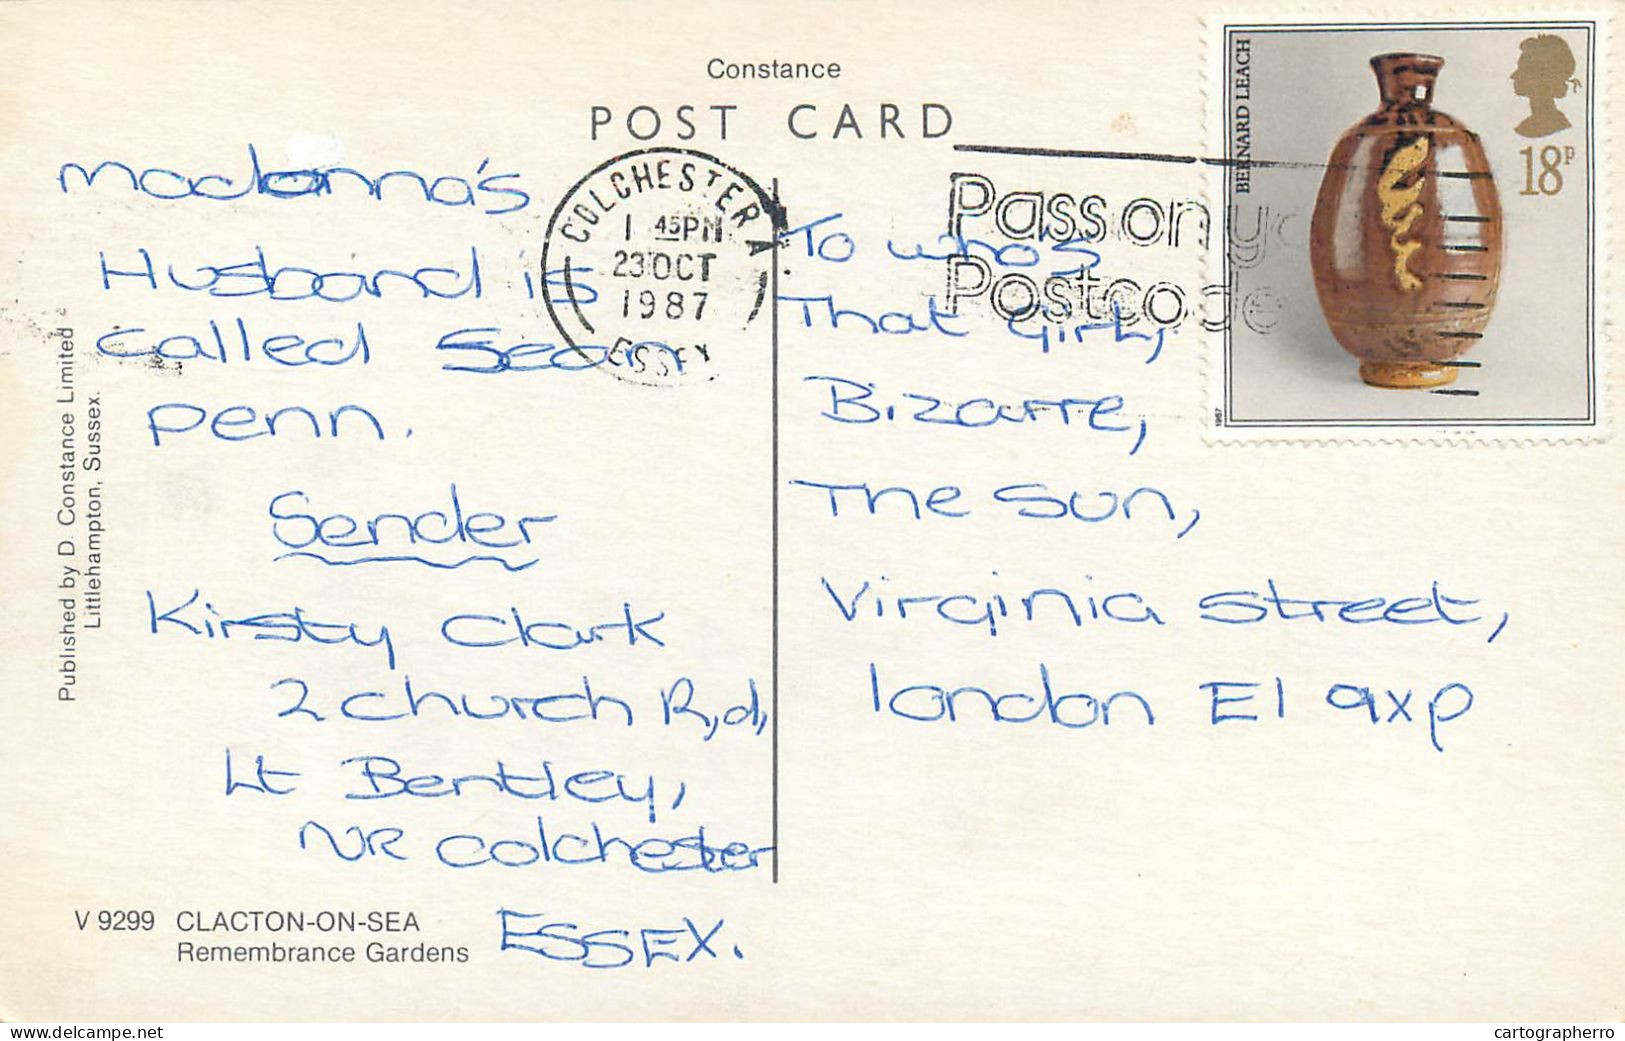 Constance
POST CARD
Madonna's
Husband is
called Sean
Penn.
Sender
Kirsty Clark
2 Church R,d,
Lt Bentley,
NR Colchester
ESSEX.
COLCHESTER A
1 45PM
23 OCT
1987
ESSEX
Pass on yo
Postcode
To who's
That Girl,
Bizarre,
The Sun,
Virginia Street,
London E1 9XP
BERNARD LEACH
18P
1987
Published by D. Constance Limited
Littlehampton, Sussex.
V 9299 CLACTON-ON-SEA
Remembrance Gardens
www.delcampe.net
cartographerro